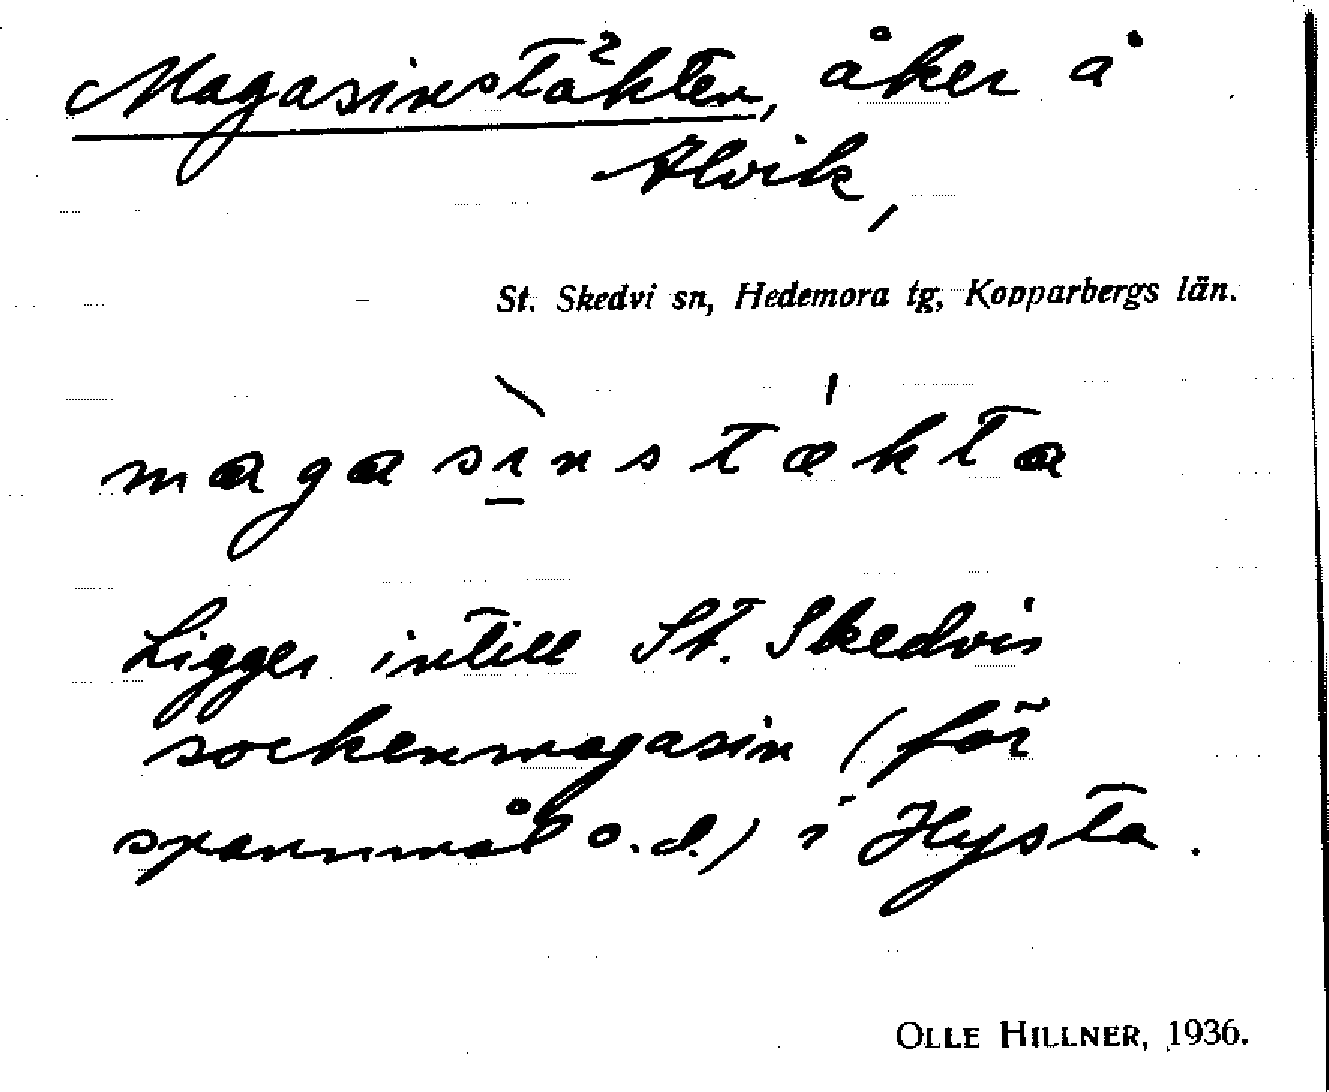 Magasinstäkten, åker å
Alvik,
St. Skedvi sn, Hedemora tg, Kopparbergs län.
magasìnstǽkta
Ligger intill St. Skedvis
sockenmagasin (för
spannmål o.d.) i Hysta.
OLLE HILLNER, 1936.